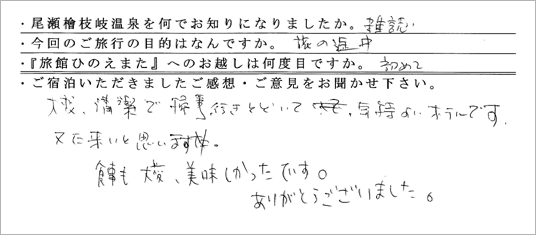 ・尾瀬檜枝岐温泉を何でお知りになりましたか。雑誌
・今回のご旅行の目的はなんですか。旅の途中
・『旅館ひのえまた』へのお越しは何度目ですか。初めて
・ご宿泊いただきましたご感想・ご意見をお聞かせ下さい。
大変、清潔で掃除行きとどいて 気持よいホテルです。
又た来いと思います。
食事も大変、美味しかったです。
ありがとうございました。